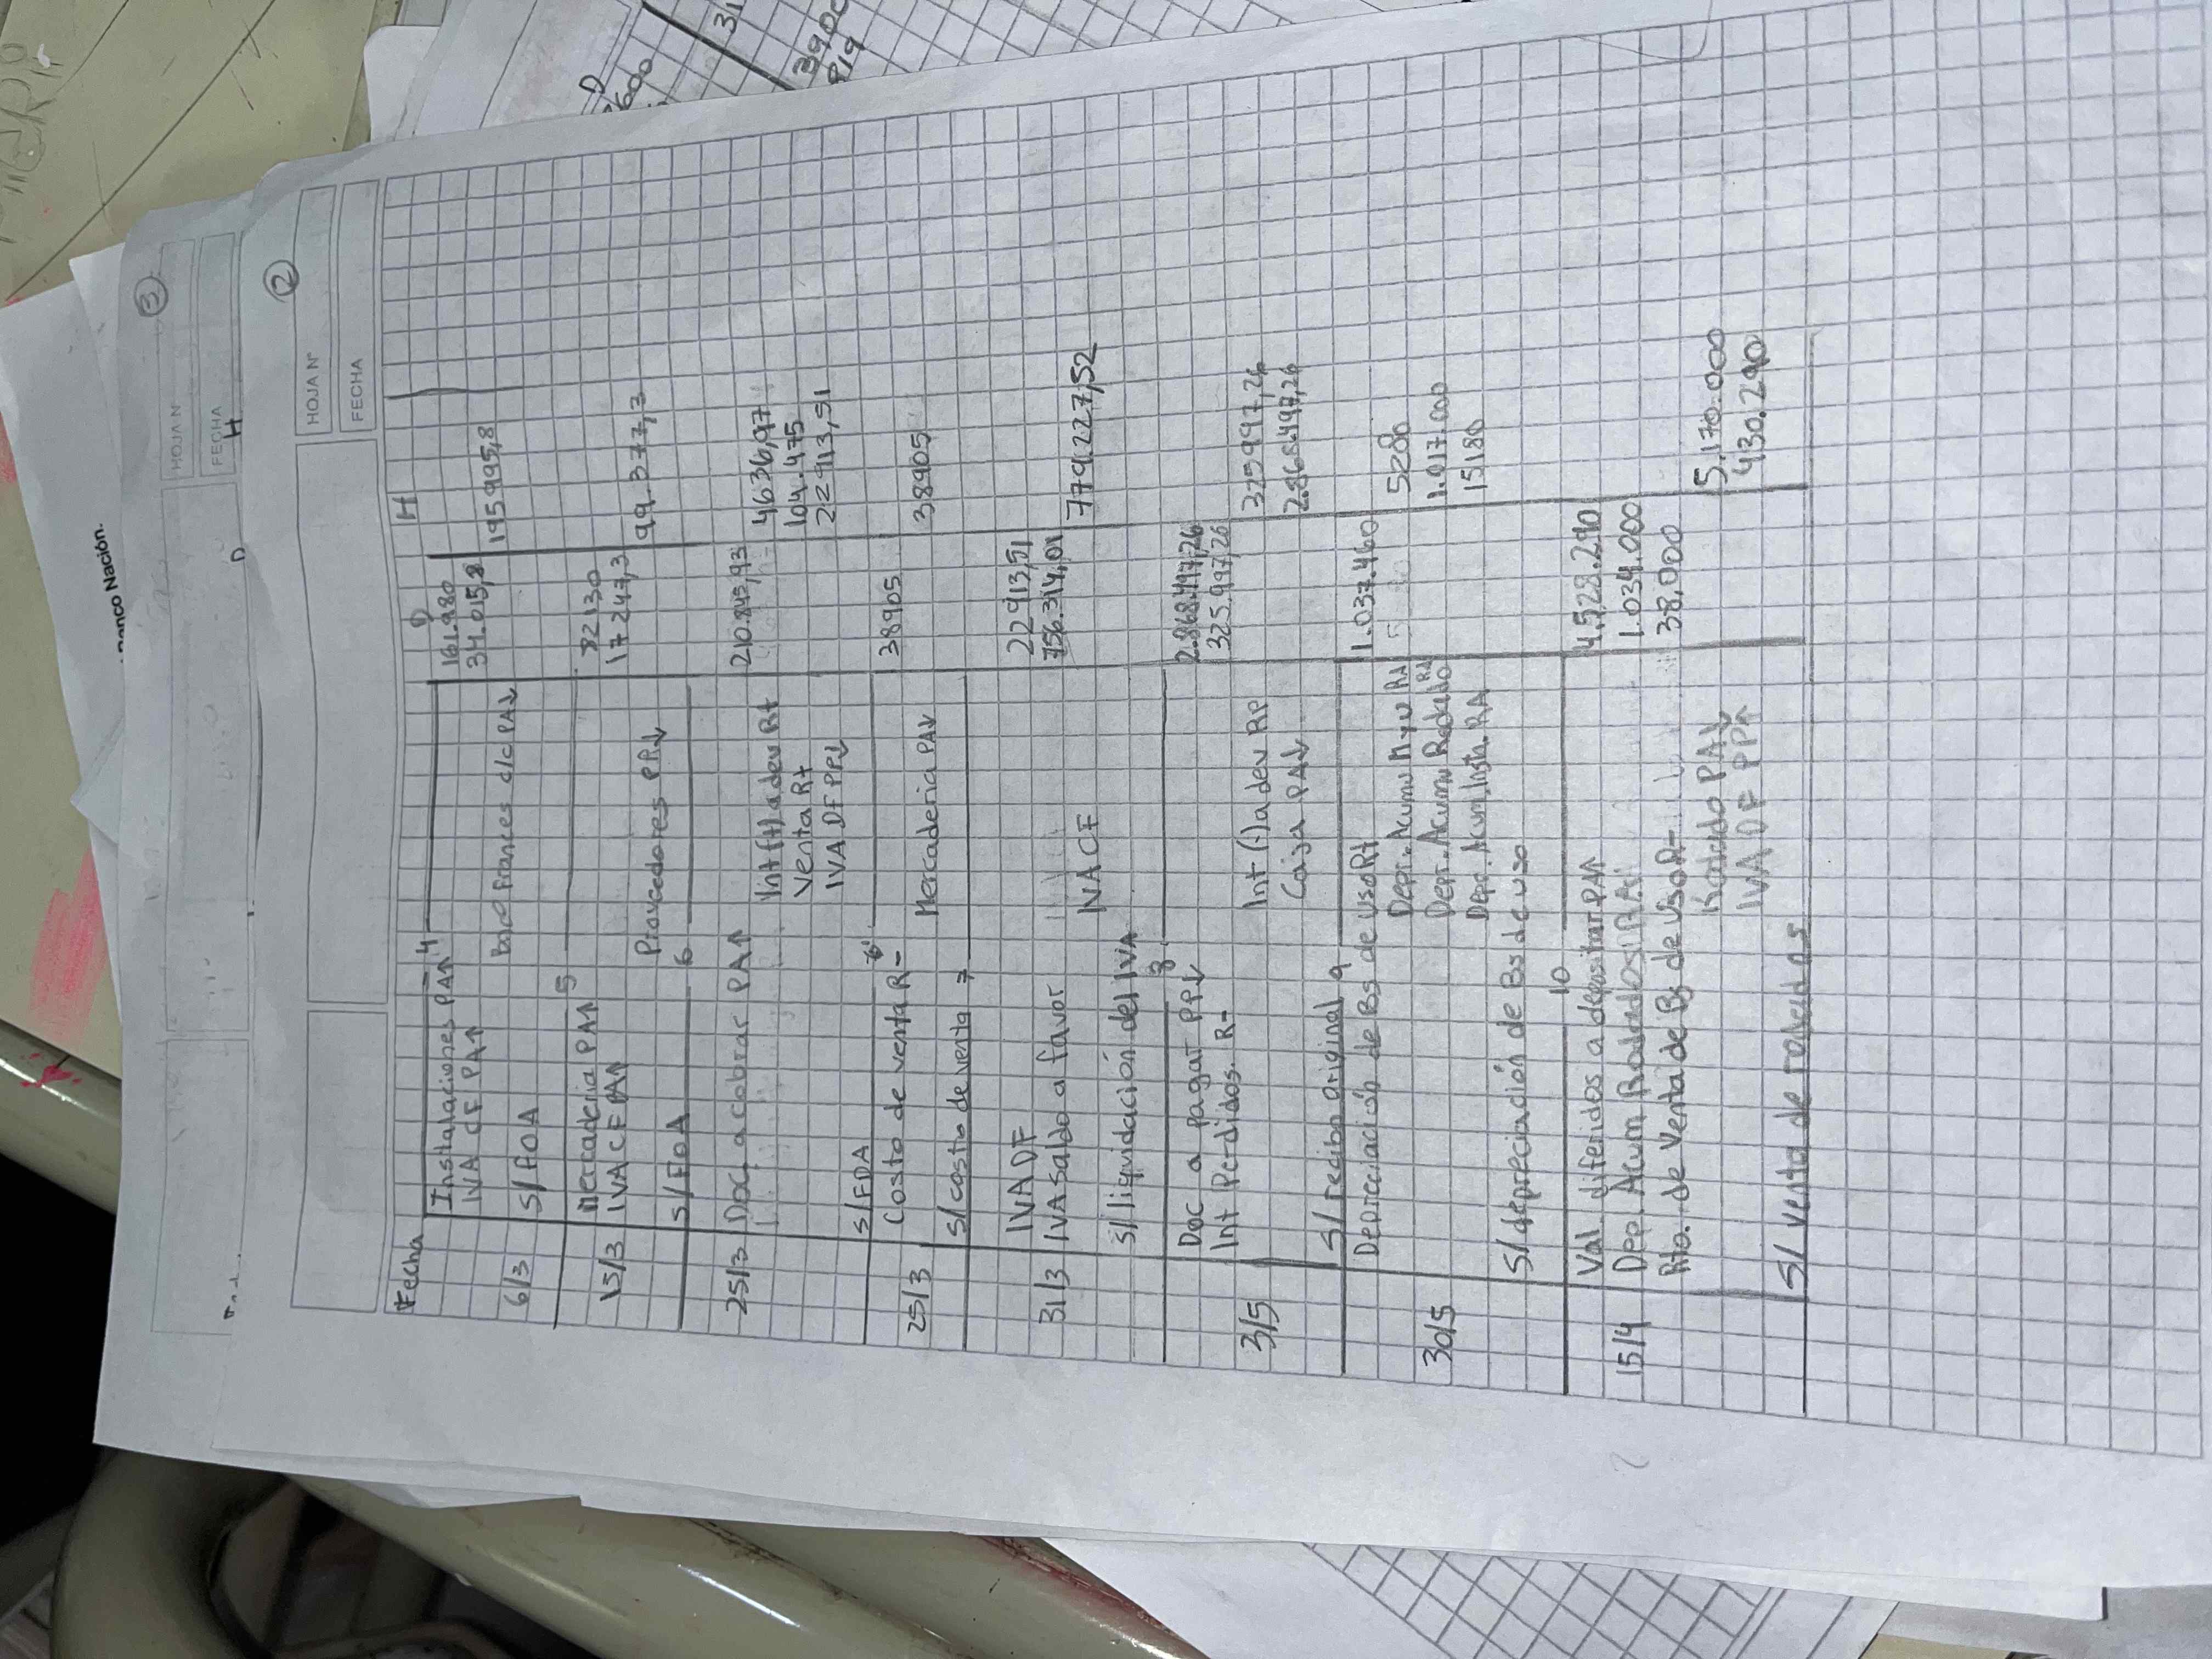 Banco Nación.
③
HOJA N
FECHA
D
H
②
HOJA Nº
FECHA
Fecha
D
H
4
Instalaciones PA↑ 161.980
IVA CF PA↑ 34.015,8
6/3 Bnco Frances c/c PA↓ 195995,8
S/FOA
5
Mercaderia PA↑ 82130
15/3 IVA CF PA↑ 17247,3
Proveedores PP↓ 99.377,3
S/FOA
6
25/3 Doc a cobrar PA↑ 210.845,93
Int (+) a dev R+ 4636,97
Venta R+ 104.475
IVA DF PP↓ 22913,51
S/FDA
6'
25/3 Costo de venta R- 38905
Mercaderia PA↓ 38905
S/costo de venta
7
IVA DF 22913,51
31/3 IVA Saldo a favor 756.314,01
IVA CF 779.227,52
S/liquidación del IVA
8
Doc a pagar PP↓ 2.868.497,26
Int Perdidos. R- 325.997,26
3/5 Int (-) a dev RP 325997,26
Caja PA↓ 2.868.497,26
S/recibo original
9
Depreciación de Bs de uso R+ 1.037.460
30/5 Depr. Acumu MyU RA 5280
Depr. Acumu Rodado RA 1.017.000
Depr. Acum. Insta. RA 15180
S/depreciación de Bs de uso
10
Val. diferidos a depositar PA↑ 4.528.290
15/4 Dep. Acum Rodados RA 1.034.000
Rto. de Venta de Bs de Uso R- 38.000
Rodado PA↓ 5.170.000
IVA DF PP↑ 430.290
S/ venta de rodados